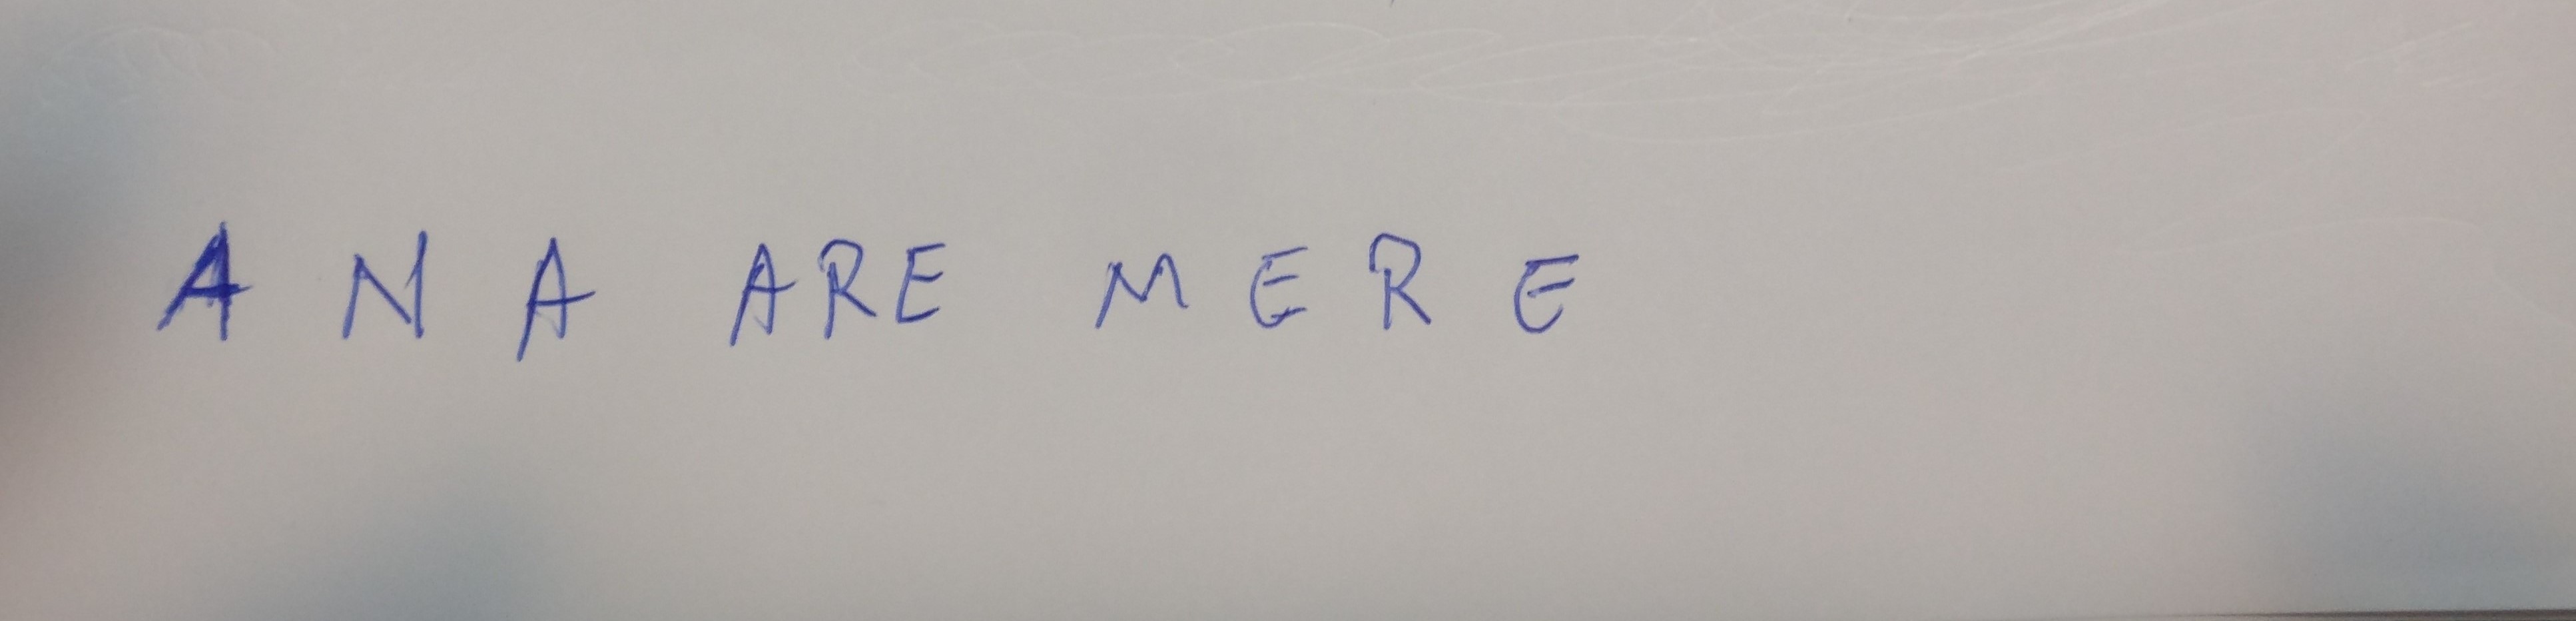 ANA ARE MERE